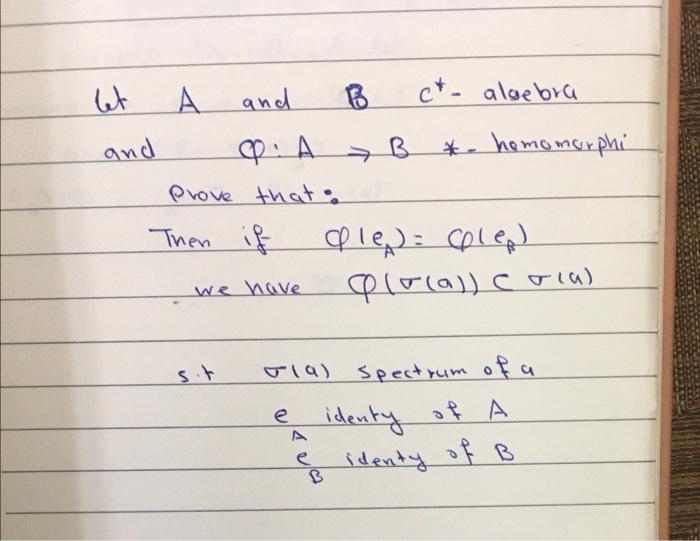 let A and B C*- algebra
and φ: A → B *- homomorphi
Prove that:
Then if φ(e_A) = φ(e_B)
we have φ(σ(a)) ⊂ σ(a)
s.t σ(a) spectrum of a
e_A identy of A
e_B identy of B